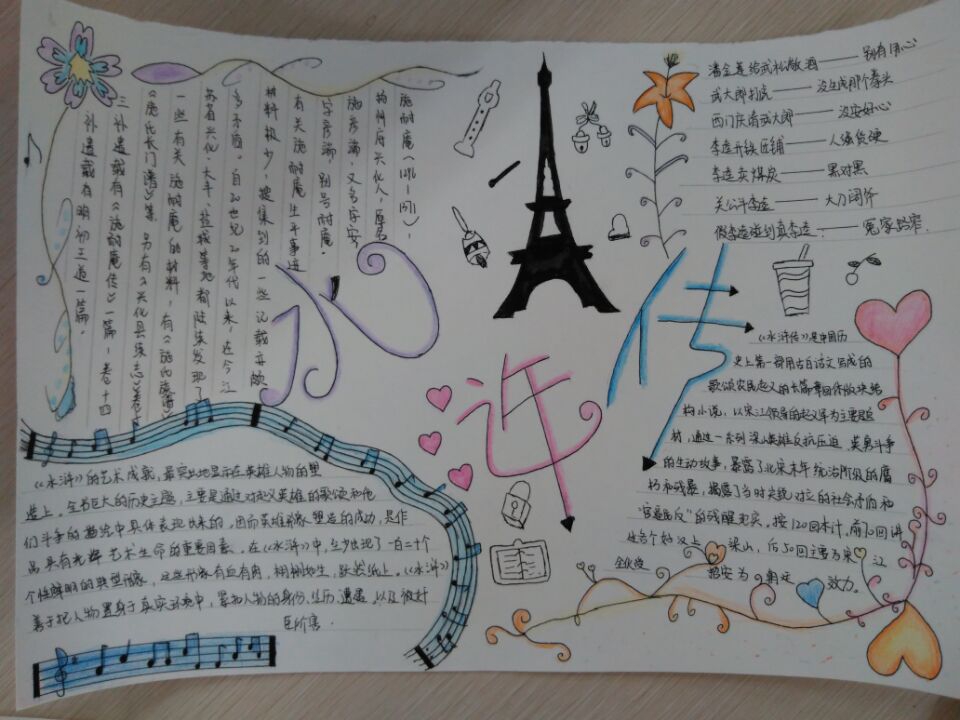 施耐庵(1296-1371),
府兴化人,原名
施彦端,又名字安
字彦端,别号耐庵。
有关施耐庵生平事迹
材料极少,搜集到的一些记载亦颇
多矛盾。自20世纪20年代以来,在今江
苏省兴化、大丰、盐城等地都陆续发现了
一些有关施耐庵的材料,有《施氏族谱》
《施氏长门谱》等。另有《兴化县续志》卷十
三补遗载有《施耐庵传》一篇,卷十四
补遗载有明初王道一篇。
水
许
传
潘金莲给武松敬酒——别有用心
武大郎打虎——没生成那个拳头
西门庆请武大郎——没安好心
李逵开铁匠铺——人强货硬
李逵卖煤炭——黑对黑
关公斗李逵——大刀阔斧
假李逵碰到真李逵——冤家路窄
《水浒传》是中国历
史上第一部用古白话文写成的
歌颂农民起义的长篇章回体版块结
构小说,以宋江领导的起义军为主要题
材,通过一系列梁山英雄反抗压迫、英勇斗争
的生动故事,暴露了北宋末年统治阶级的腐
朽和残暴,揭露了当时尖锐对立的社会矛盾和
“官逼民反”的残酷现实。按120回本计,前70回讲
述各个好汉上梁山,后50回主要为宋江
全伙受招安为朝廷效力。
《水浒》的艺术成就,最突出地显示在英雄人物的塑
造上。全书巨大的历史主题,主要是通过对起义英雄的歌颂和他
们斗争的描绘中具体表现出来的。因而英雄形象塑造的成功,是作
品具有光辉艺术生命的重要因素。在《水浒》中,至少出现了一百二十个
个性鲜明的典型形象,这些形象有血有肉,栩栩如生,跃然纸上。《水浒》
善于把人物置身于真实环境中,紧扣人物的身份、经历、遭遇,以及被奸
臣所害。